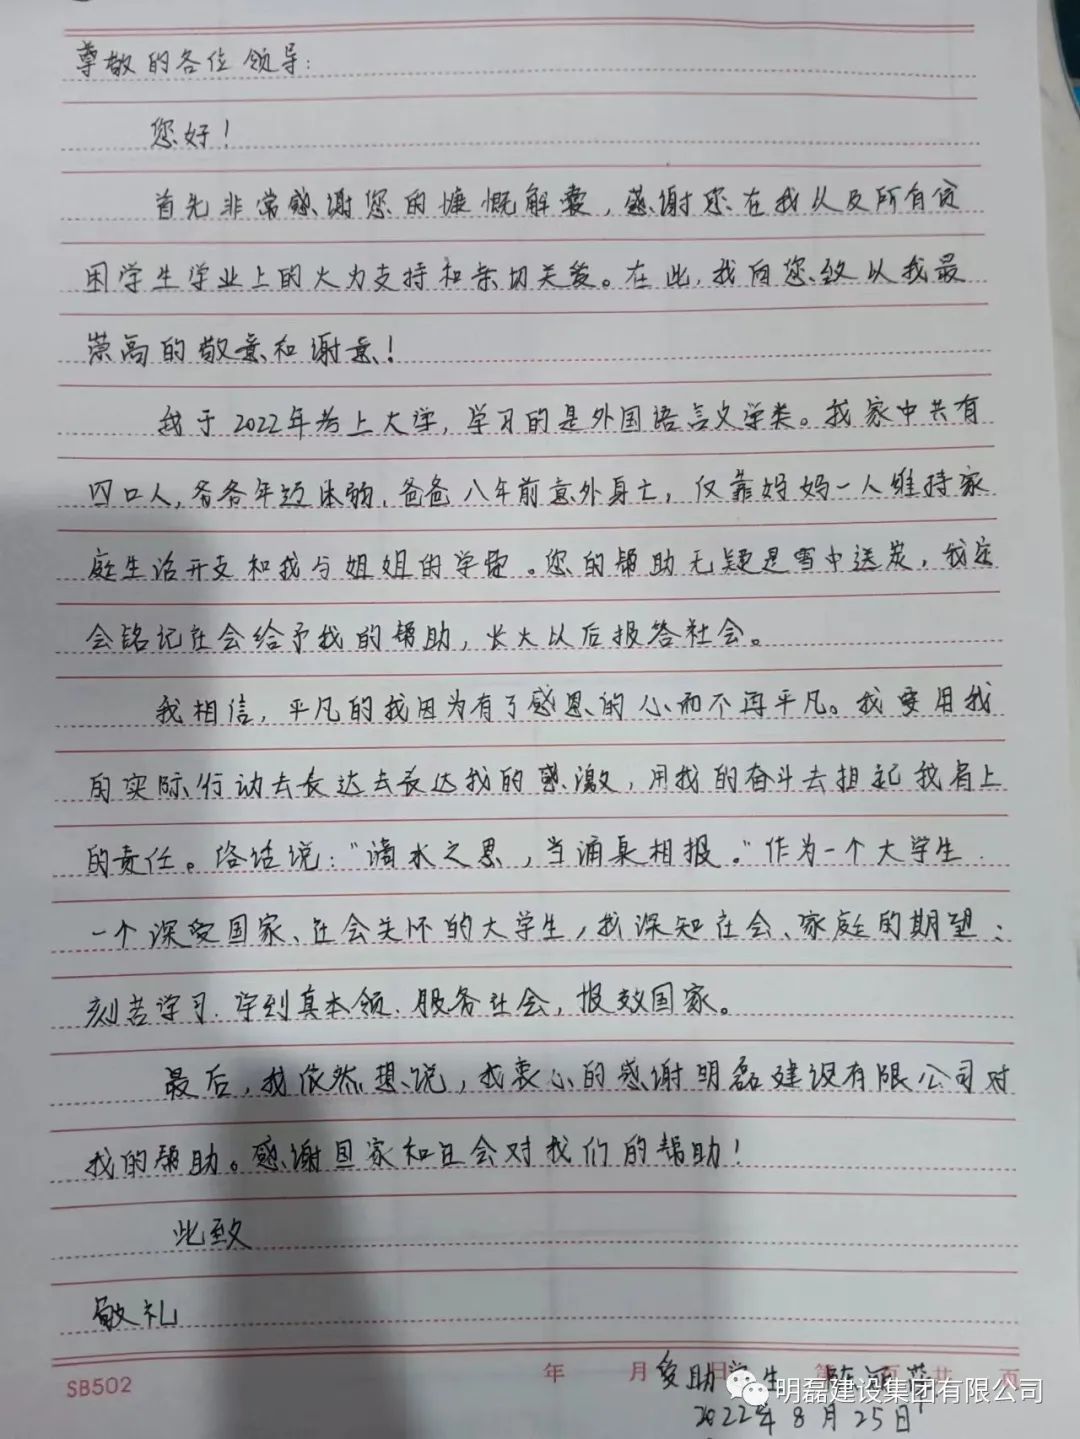 尊敬的各位领导：
您好！
首先非常感谢您的慷慨解囊，感谢您在我以及所有贫
困学生学业上的大力支持和亲切关爱。在此，我向您致以我最
崇高的敬意和谢意！
我于2022年考上大学，学习的是外国语言文学类。我家中共有
四口人，爷爷年迈体弱，爸爸八年前意外身亡，仅靠妈妈一人维持家
庭生活开支和我与姐姐的学费。您的帮助无疑是雪中送炭，我定
会铭记社会给予我的帮助，长大以后报答社会。
我相信，平凡的我因为有了感恩的心而不再平凡。我要用我
的实际行动去表达去表达我的感激，用我的奋斗去担起我肩上
的责任。俗话说："滴水之恩，当涌泉相报。"作为一个大学生
一个深受国家、社会关怀的大学生，我深知社会、家庭的期望：
刻苦学习、学到真本领、服务社会，报效国家。
最后，我依然想说，我衷心的感谢明磊建设有限公司对
我的帮助。感谢国家和社会对我们的帮助！
此致
敬礼
SB502
年 月 日 第 页 共 页
受助学生
明磊建设集团有限公司
2022年8月25日